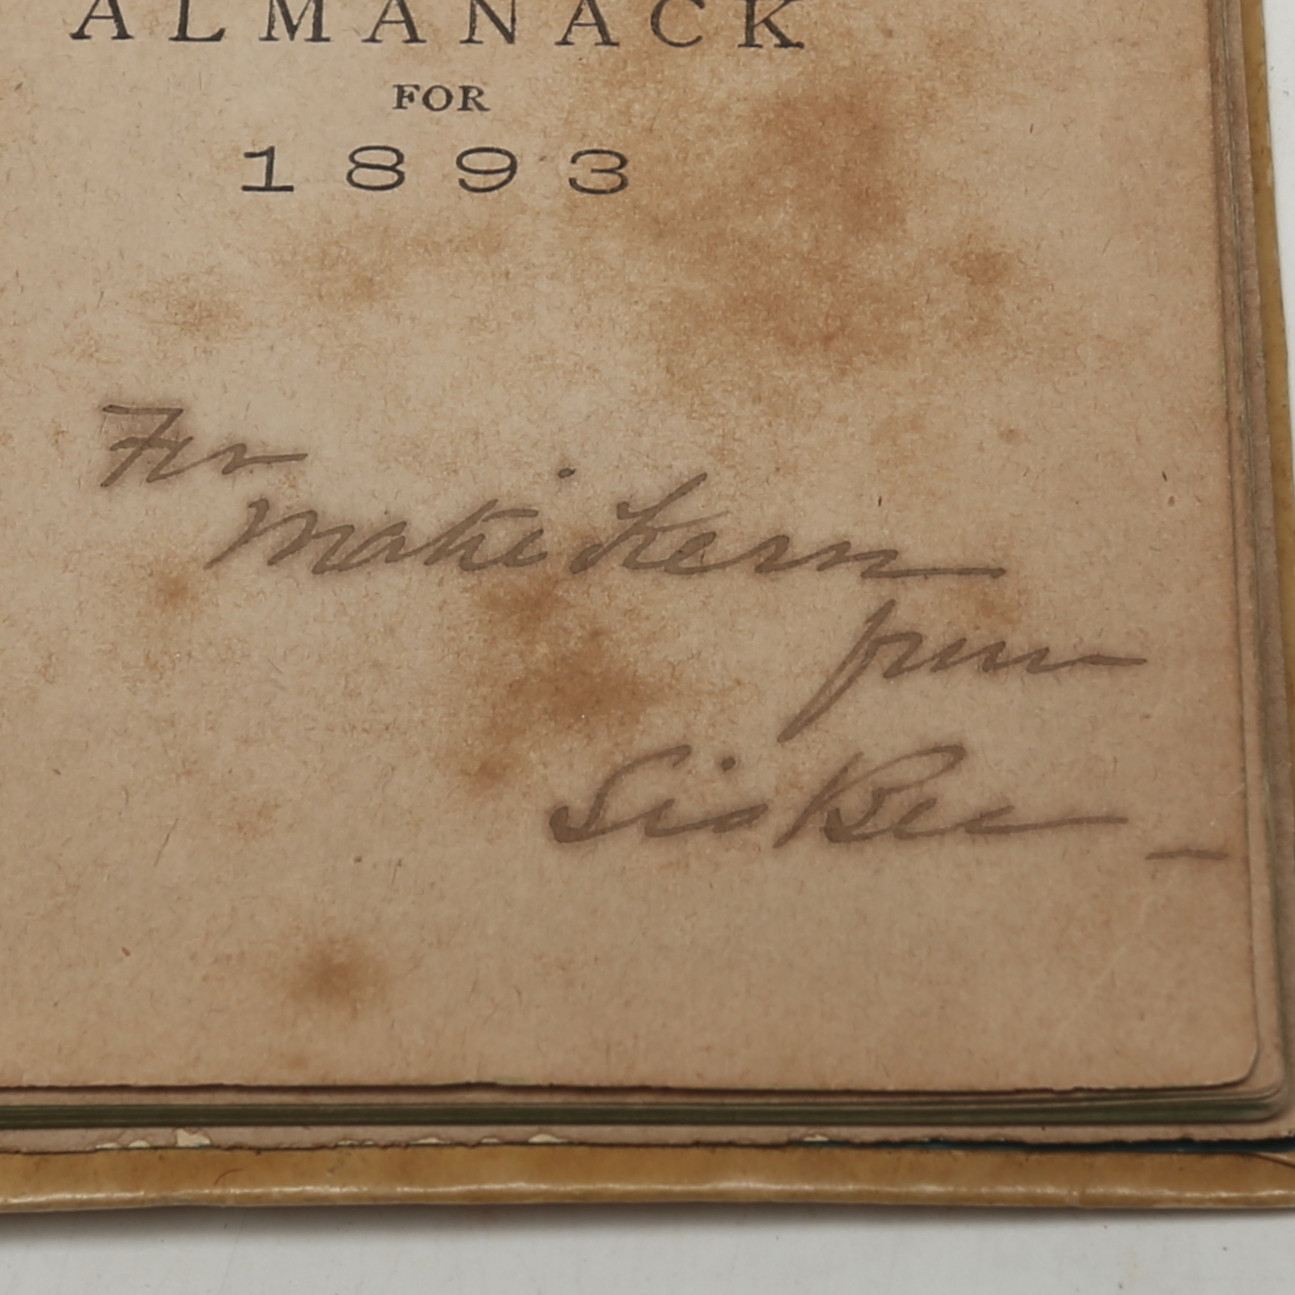 ALMANACK
FOR
1893
For
Kern
from
Sis Bee